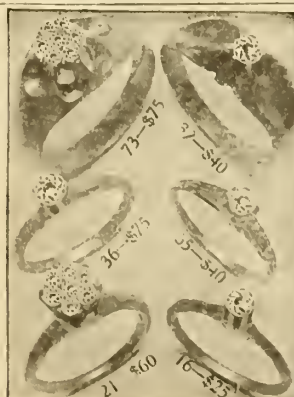 73—$75
37—$40
36—$75
35—$40
21 $60
16—$25